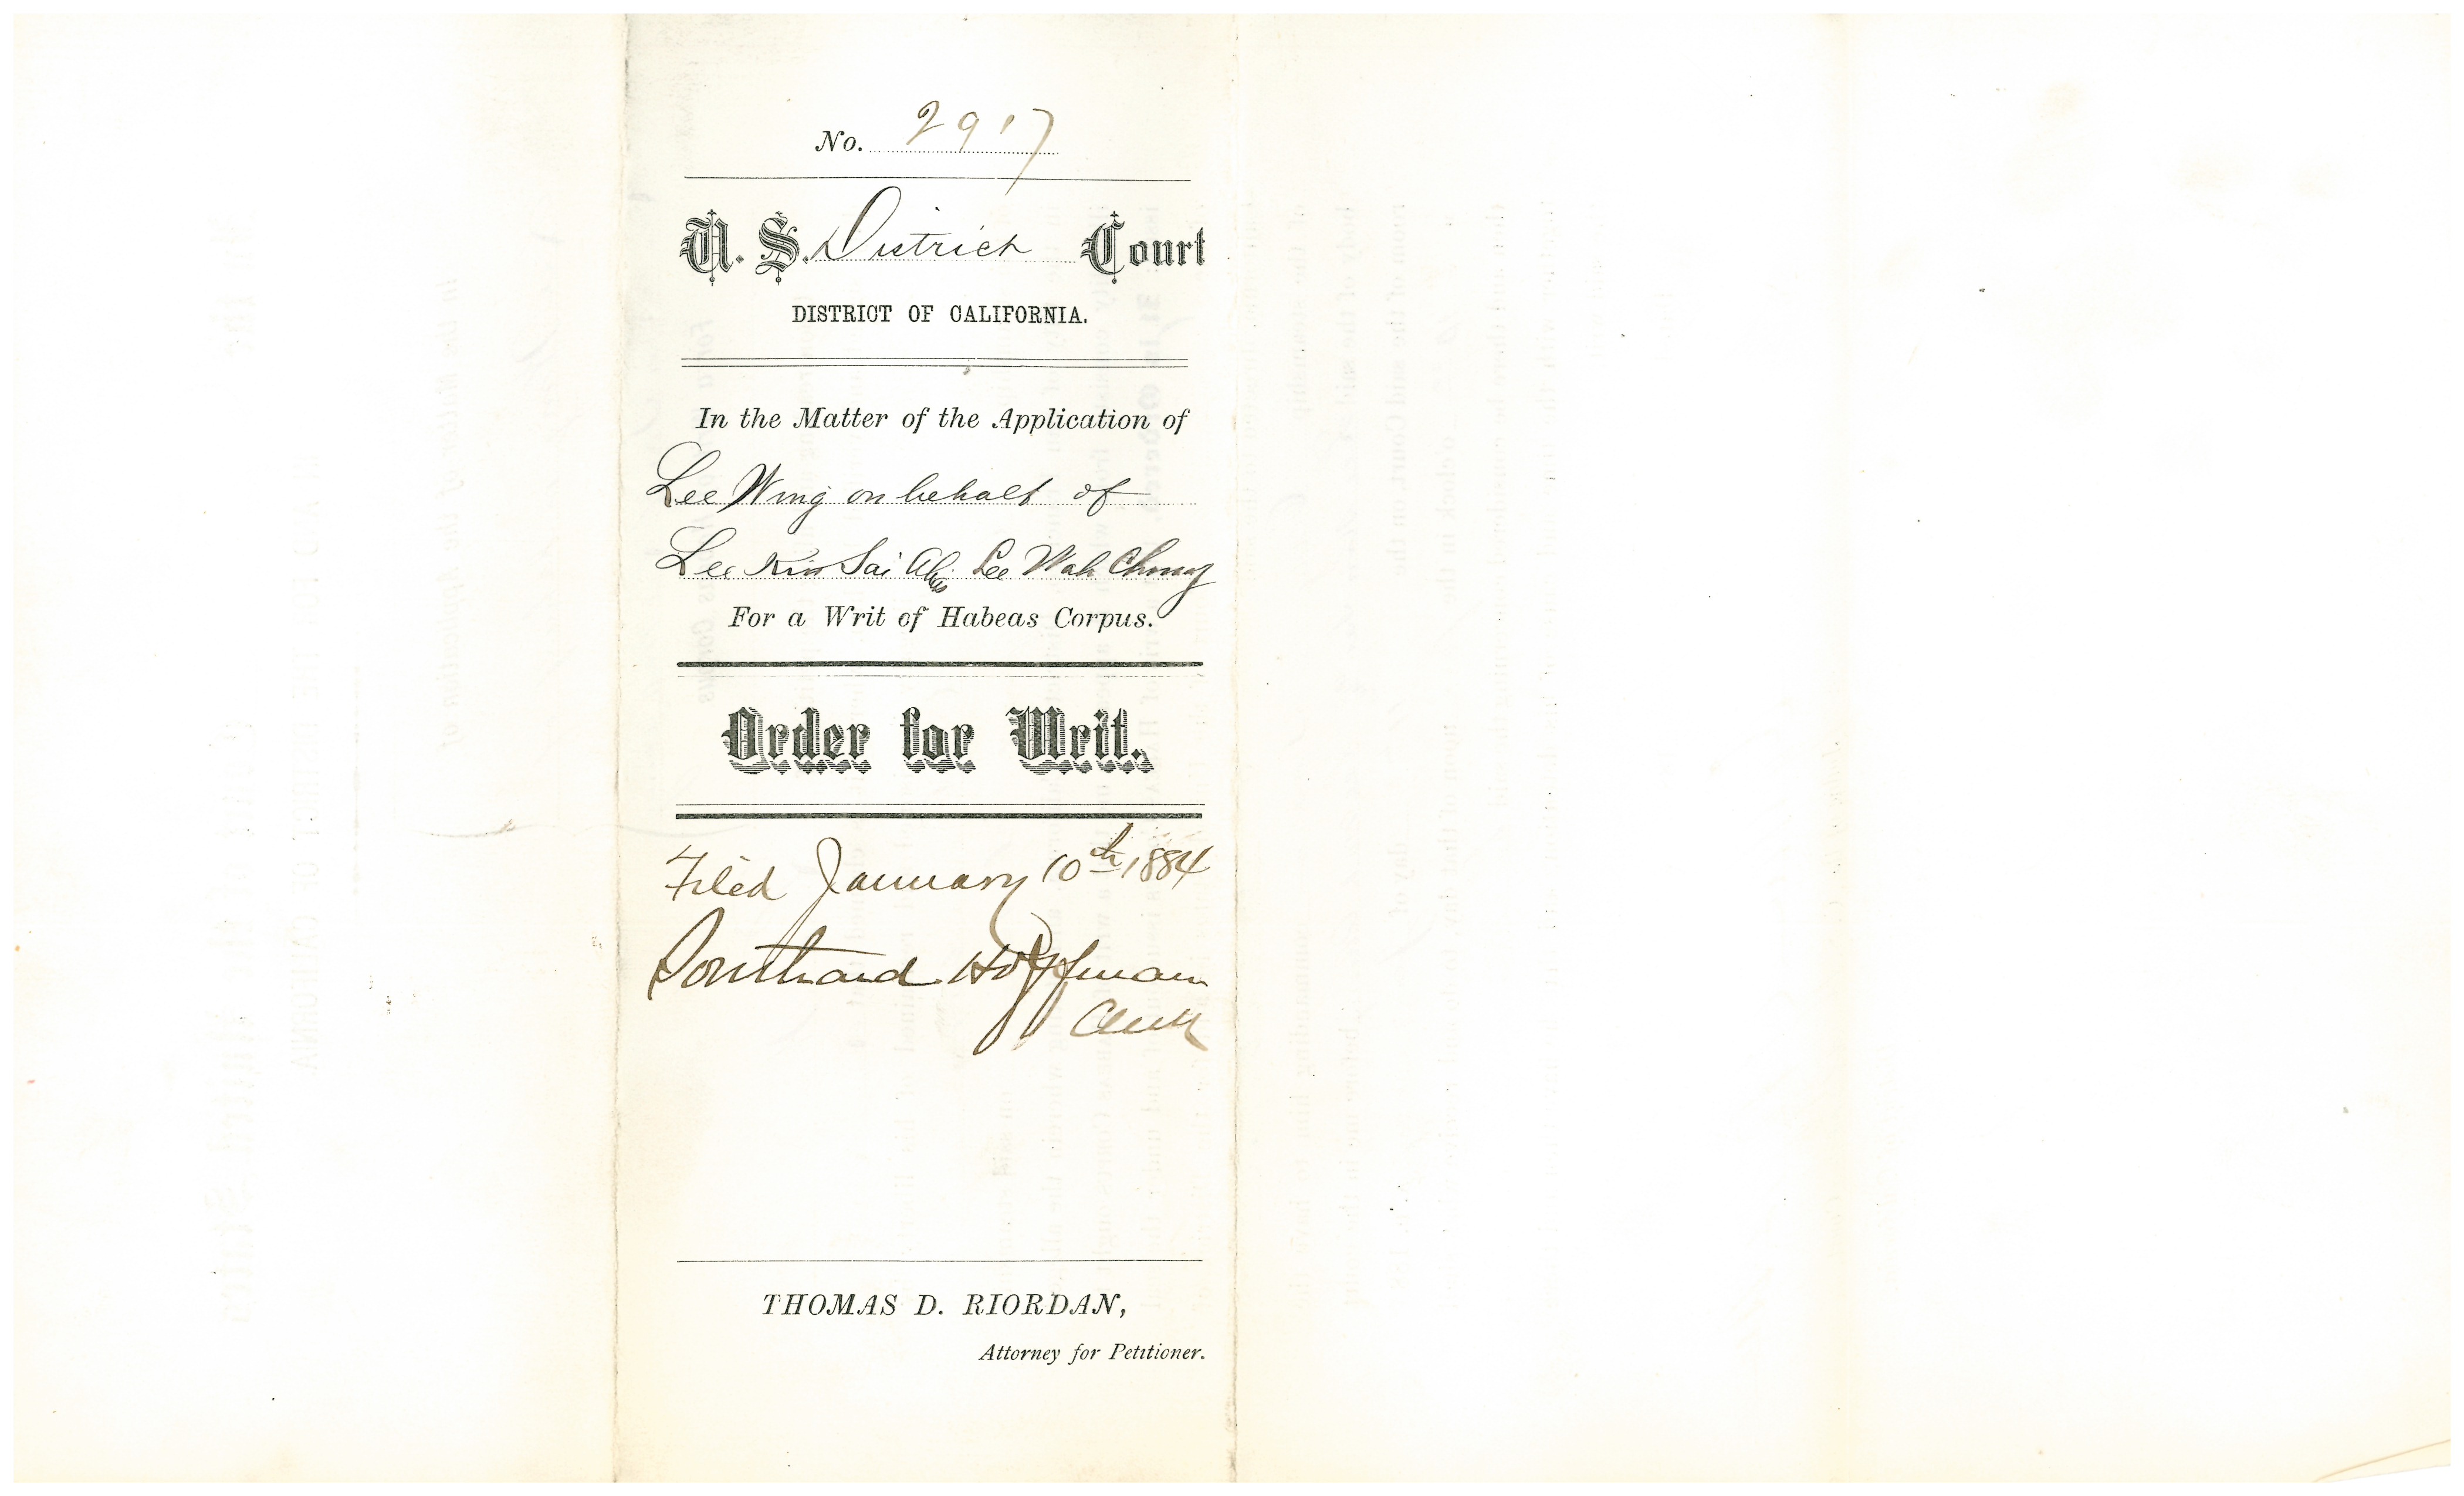 No. 2917
U. S. District Court
DISTRICT OF CALIFORNIA.
In the Matter of the Application of
Lee Wing on behalf of
Lee Kim Sai Alias Lee Wah Chung
For a Writ of Habeas Corpus.
Order for Writ.
Filed January 10th 1884
Southard Hoffman
Clerk
THOMAS D. RIORDAN,
Attorney for Petitioner.